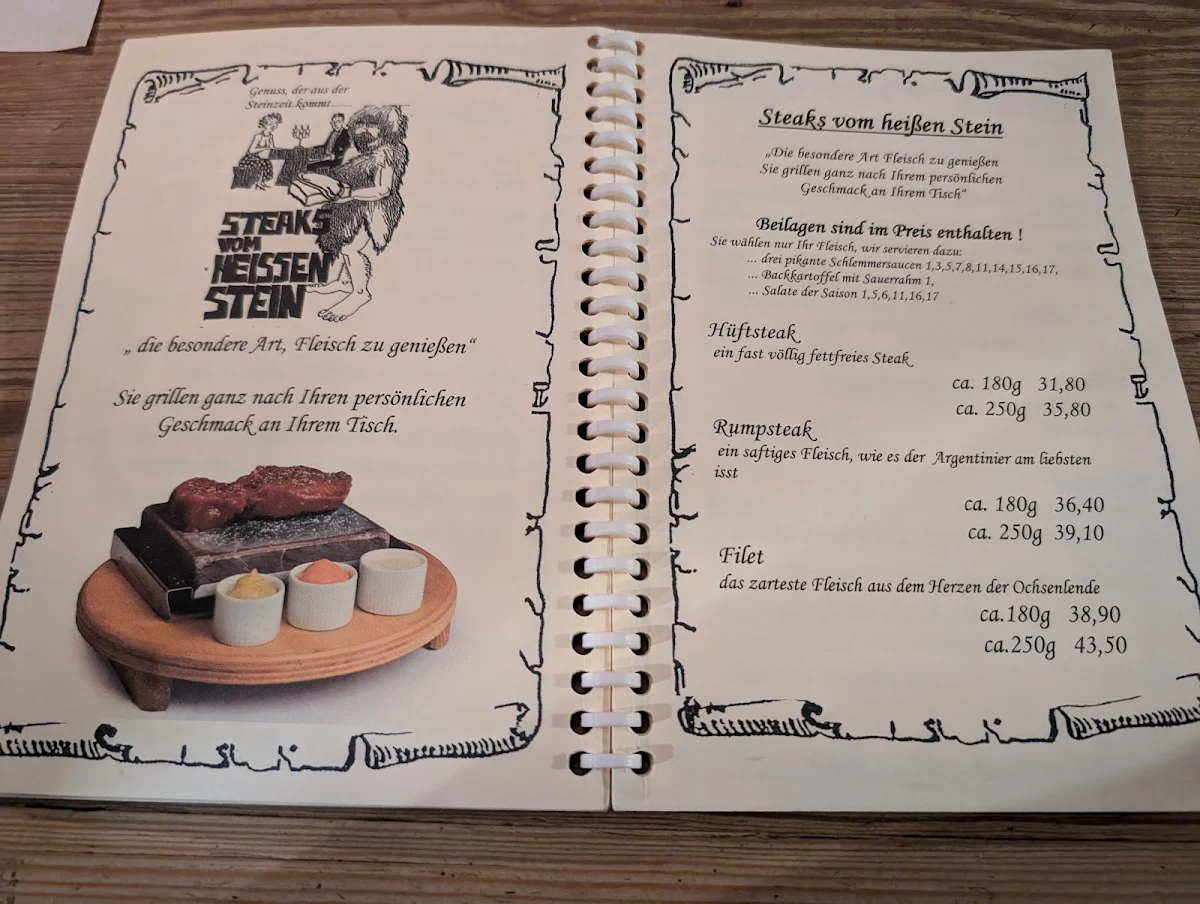 Genuss, der aus der
Steinzeit kommt......
STEAKS
VOM
HEISSEN
STEIN
„ die besondere Art, Fleisch zu genießen“
Sie grillen ganz nach Ihren persönlichen
Geschmack an Ihrem Tisch.
Steaks vom heißen Stein
„Die besondere Art Fleisch zu genießen
Sie grillen ganz nach Ihrem persönlichen
Geschmack an Ihrem Tisch“
Beilagen sind im Preis enthalten !
Sie wählen nur Ihr Fleisch, wir servieren dazu:
... drei pikante Schlemmersaucen 1,3,5,7,8,11,14,15,16,17,
... Backkartoffel mit Sauerrahm 1,
... Salate der Saison 1,5,6,11,16,17
Hüftsteak
ein fast völlig fettfreies Steak
ca. 180g 31,80
ca. 250g 35,80
Rumpsteak
ein saftiges Fleisch, wie es der Argentinier am liebsten
isst
ca. 180g 36,40
ca. 250g 39,10
Filet
das zarteste Fleisch aus dem Herzen der Ochsenlende
ca.180g 38,90
ca.250g 43,50